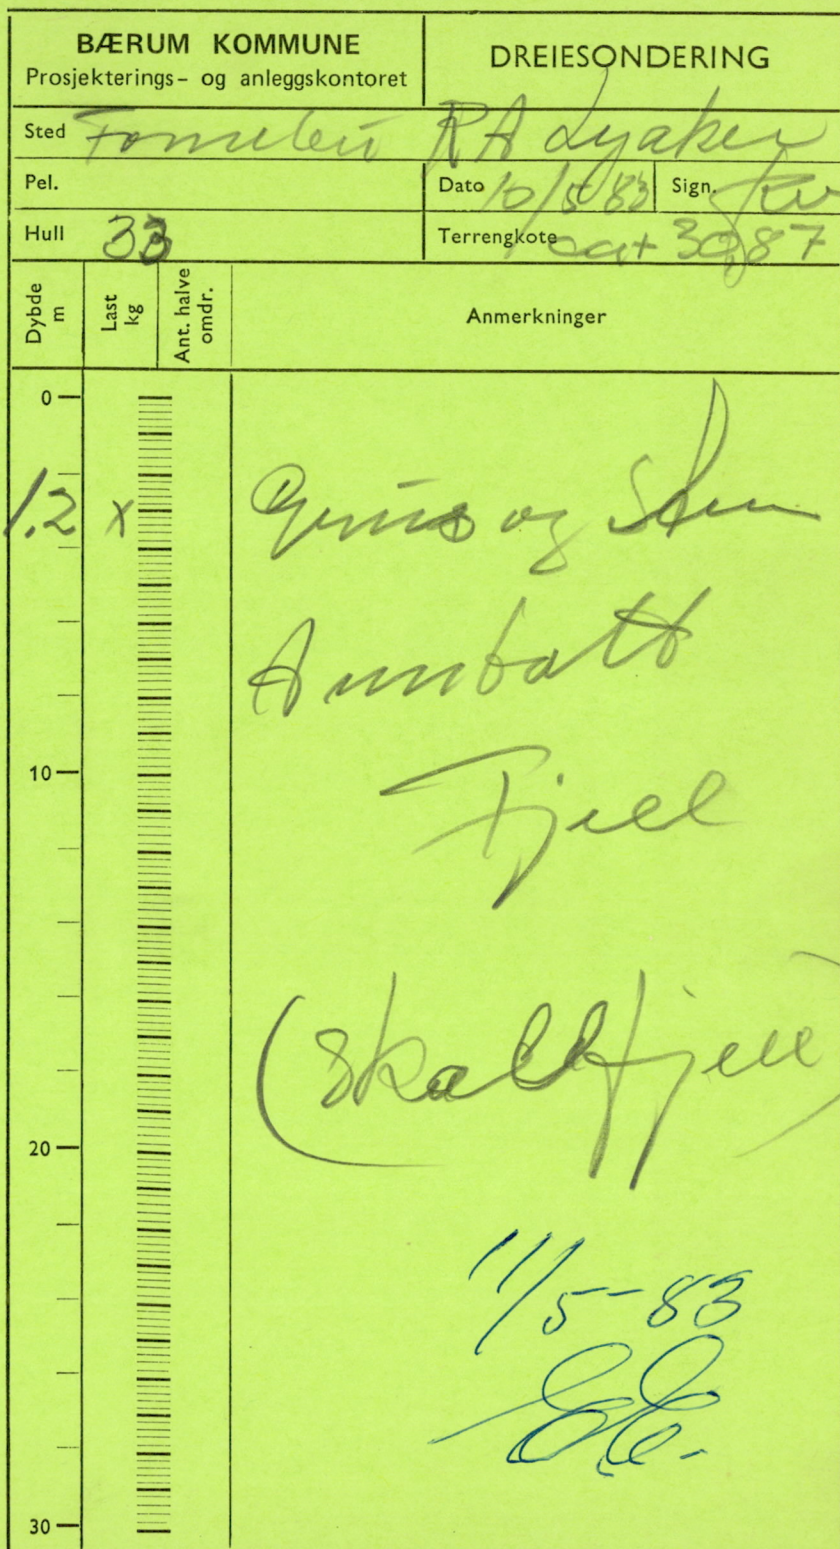 BÆRUM KOMMUNE
Prosjekterings- og anleggskontoret
DREIESONDERING
Sted Fornebu RA Lysaker
Pel.
Dato 10/5 83 Sign.
Hull 33
Terrengkote ca + 30,87
Dybde m
Last kg
Ant. halve omdr.
Anmerkninger
0
1.2 x Grus og Sten
Antatt
Fjell
10
(Skallfjell)
20
11/5-83
30